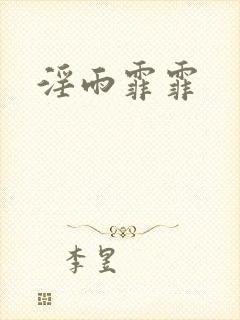 淫雨霏霏
李昱